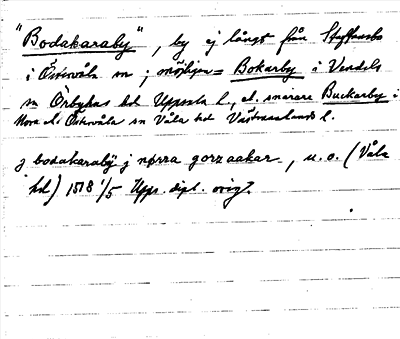 "Bodakaraby", by ej långt från Staffansbo
i Östervåla sn; möjligen = Bokarby i Vendels
sn Örbyhus hd Uppsala l, el. snarare Buckarby i
Nora el. Östervåla sn Våla hd Västmanlands l.
j bodakaraby j nørra gorzaakar, u.o. (Våla
hd) 1518 1/5 Upps. dipl. orig.